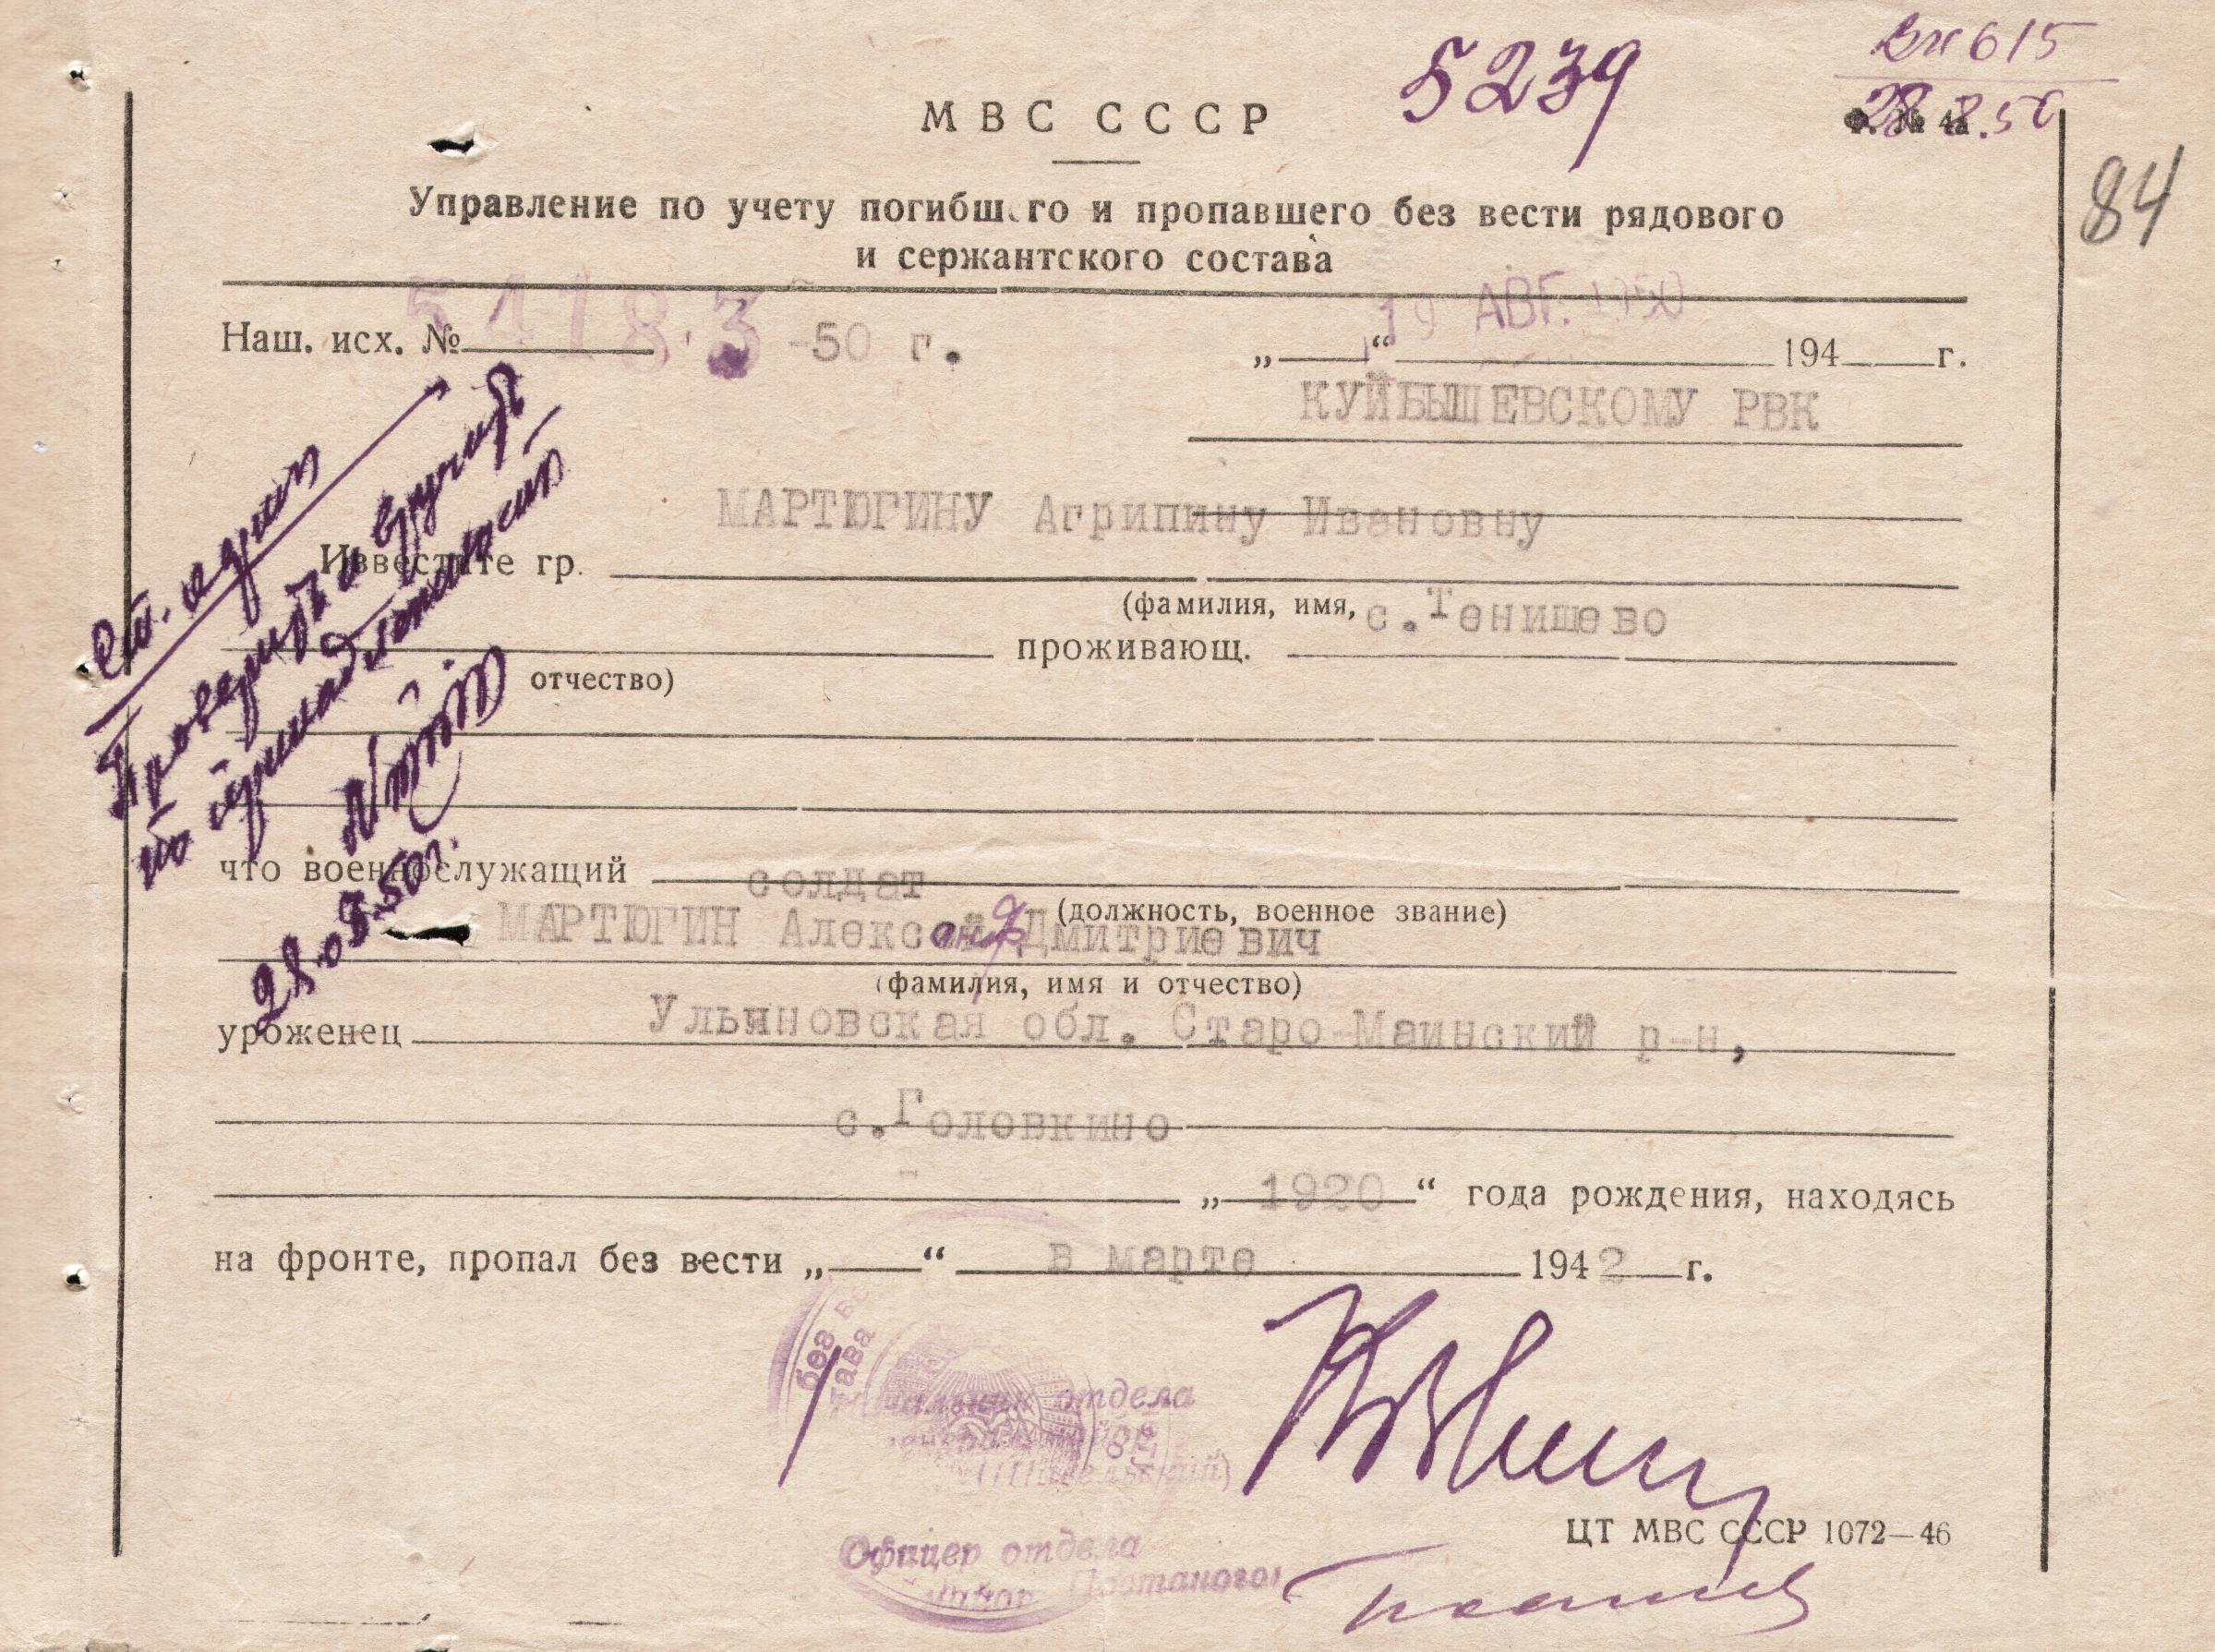 5239
Вх 615
28.8.50
М В С С С С Р
Ф. № 4а
84
Управление по учету погибшего и пропавшего без вести рядового
и сержантского состава
54183
19 АВГ. 1950
Наш. исх. № -50 г. „ “ 194 г.
КУЙБЫШЕВСКОМУ РВК
МАРТЮГИНУ Агрипину Ивановну
Известите гр.
(фамилия, имя, с.Тенишево
проживающ.
отчество)
Проверить и вручить
по принадлежности
28.08.50г.
что военнослужащий солдат
(должность, военное звание)
МАРТЮГИН Алексей Дмитриевич
(фамилия, имя и отчество)
уроженец Ульяновская обл. Старо-Маинский р-н,
с.Головкино
„ 1920 “ года рождения, находясь
на фронте, пропал без вести „ “ в марте 1942 г.
без
тава
Начальник отдела
ЦТ МВС СССР 1072—46
Офицер отдела
майор